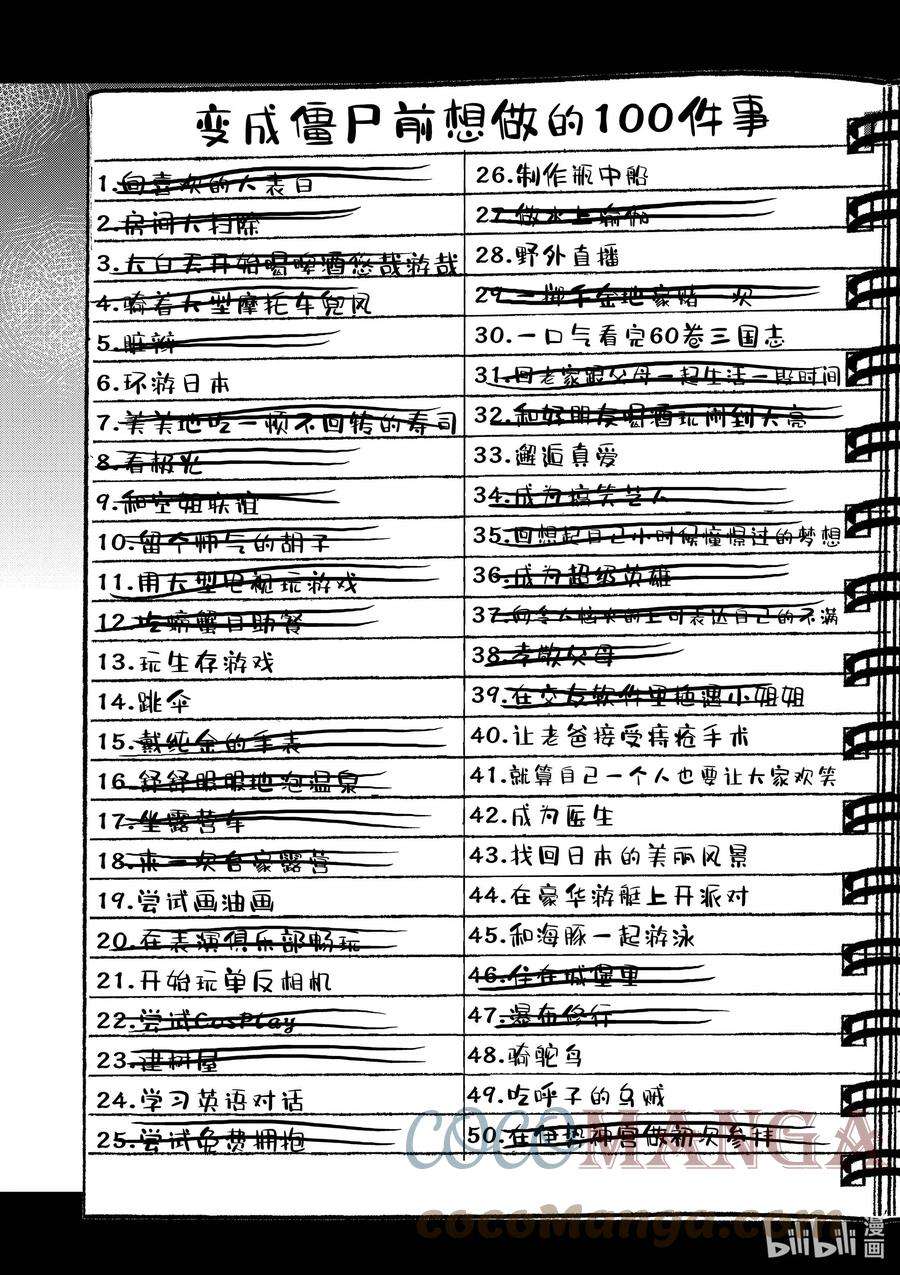 变成僵尸前想做的100件事
1.向喜欢的人表白
2.房间大扫除
3.大白天开始喝啤酒悠哉游哉
4.骑着大型摩托车兜风
5.脏辫
6.环游日本
7.美美地吃一顿不回转的寿司
8.看极光
9.和空姐联谊
10.留个帅气的胡子
11.用大型电视玩游戏
12.吃螃蟹自助餐
13.玩生存游戏
14.跳伞
15.戴纯金的手表
16.舒舒服服地泡温泉
17.坐露营车
18.来一次自家露营
19.尝试画油画
20.在表演俱乐部畅玩
21.开始玩单反相机
22.尝试CosPlay
23.建树屋
24.学习英语对话
25.尝试免费拥抱
26.制作瓶中船
27.做水上瑜伽
28.野外直播
29.一掷千金地豪赌一次
30.一口气看完60卷三国志
31.回老家跟父母一起生活一段时间
32.和好朋友喝酒玩闹到天亮
33.邂逅真爱
34.成为搞笑艺人
35.回想起自己小时候憧憬过的梦想
36.成为超级英雄
37.向令人恼火的上司表达自己的不满
38.孝敬父母
39.在交友软件里偶遇小姐姐
40.让老爸接受痔疮手术
41.就算自己一个人也要让大家欢笑
42.成为医生
43.找回日本的美丽风景
44.在豪华游艇上开派对
45.和海豚一起游泳
46.住在城堡里
47.瀑布修行
48.骑鸵鸟
49.吃呼子的乌贼
50.在伊势神宫做初次参拜
COCOMANGA
cocomanga.com
bilibili漫画